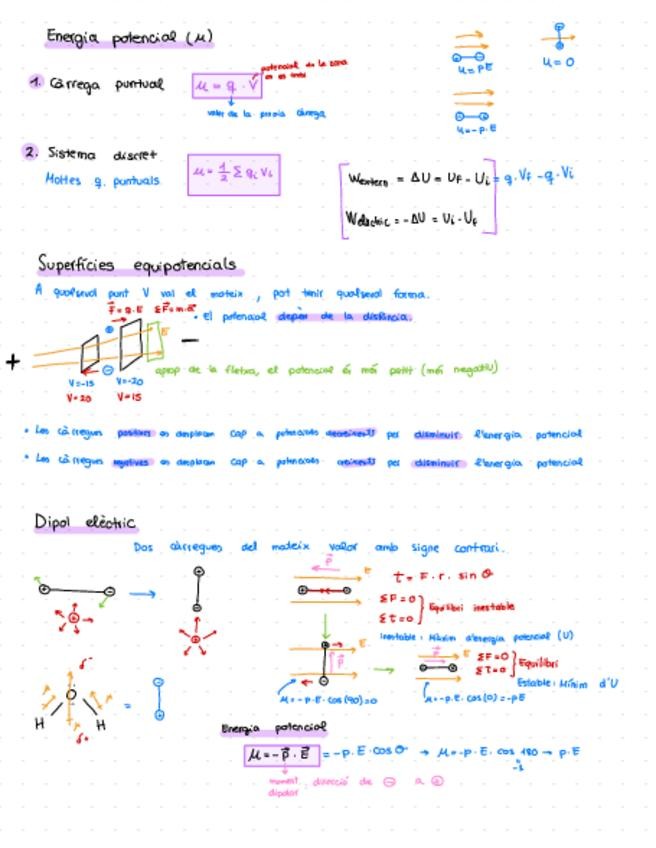 Energia potencial (u)
u = pE
u = 0
u = -p·E
1. Càrrega puntual
u = q · V
potencial de la zona
valor de la pròpia càrrega
2. Sistema discret
Moltes q. puntuals
u = 1/2 Σ qi Vi
Wextern = ΔU = UF - Ui = q·VF - q·Vi
Welèctric = -ΔU = Ui - UF
Superfícies equipotencials
A qualsevol punt V val el mateix, pot tenir qualsevol forma.
F = q·E ΣF = m·a
• El potencial depèn de la distància.
E
+ -
apop de la fletxa, el potencial és més petit (més negatiu)
V=-15 V=-20
V=20 V=15
• Les càrregues positives es desplacen cap a potencials decreixents per disminuir l'energia potencial
• Les càrregues negatives es desplacen cap a potencials creixents per disminuir l'energia potencial
Dipol elèctric
Dos càrregues del mateix valor amb signe contrari.
p
E
τ = F · r · sin θ
ΣF=0
Στ=0
Equilibri inestable
Inestable: Màxim d'energia potencial (U)
E
p
u=-p·E·cos(90)=0
p E
ΣF=0
Στ=0
Equilibri
Estable: Mínim d'U
u=-p·E·cos(0)=-pE
δ-
O
H H
δ+
=
Energia potencial
u = -p · E = -p·E·cos θ → u = -p·E·cos 180 → p·E
-1
moment dipolar
direcció de ⊖ a ⊕